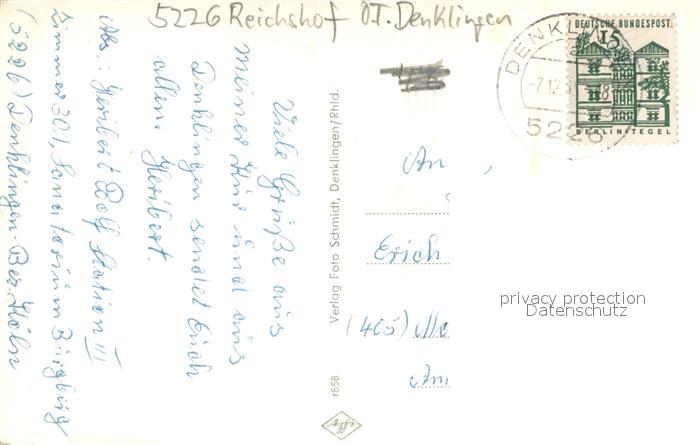 5226 Reichshof O.T. Denklingen
Abs.: Heribert Rolf Station III
Zimmer 301, Sanatorium Burgberg
(5226) Denklingen-Bez. Köln
Viele Grüße aus
meiner Kur und aus
Denklingen sendet Euch
allen Heribert.
Verlag Foto Schmidt, Denklingen/Rhld.
r 858
Agfa
DEUTSCHE BUNDESPOST
15
BERLIN-TEGEL
DENKLIN
-7.12.
5226
An
Erich
(405)
privacy protection
Datenschutz